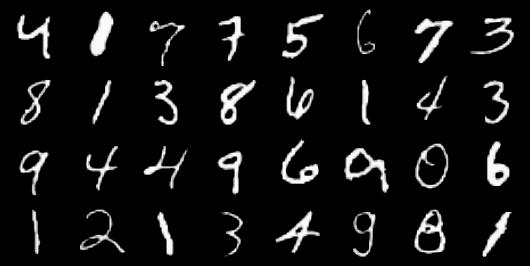 4 1 7 7 5 6 7 3
8 1 3 8 6 1 4 3
9 4 4 9 6 9 0 6
1 2 1 3 4 9 8 1